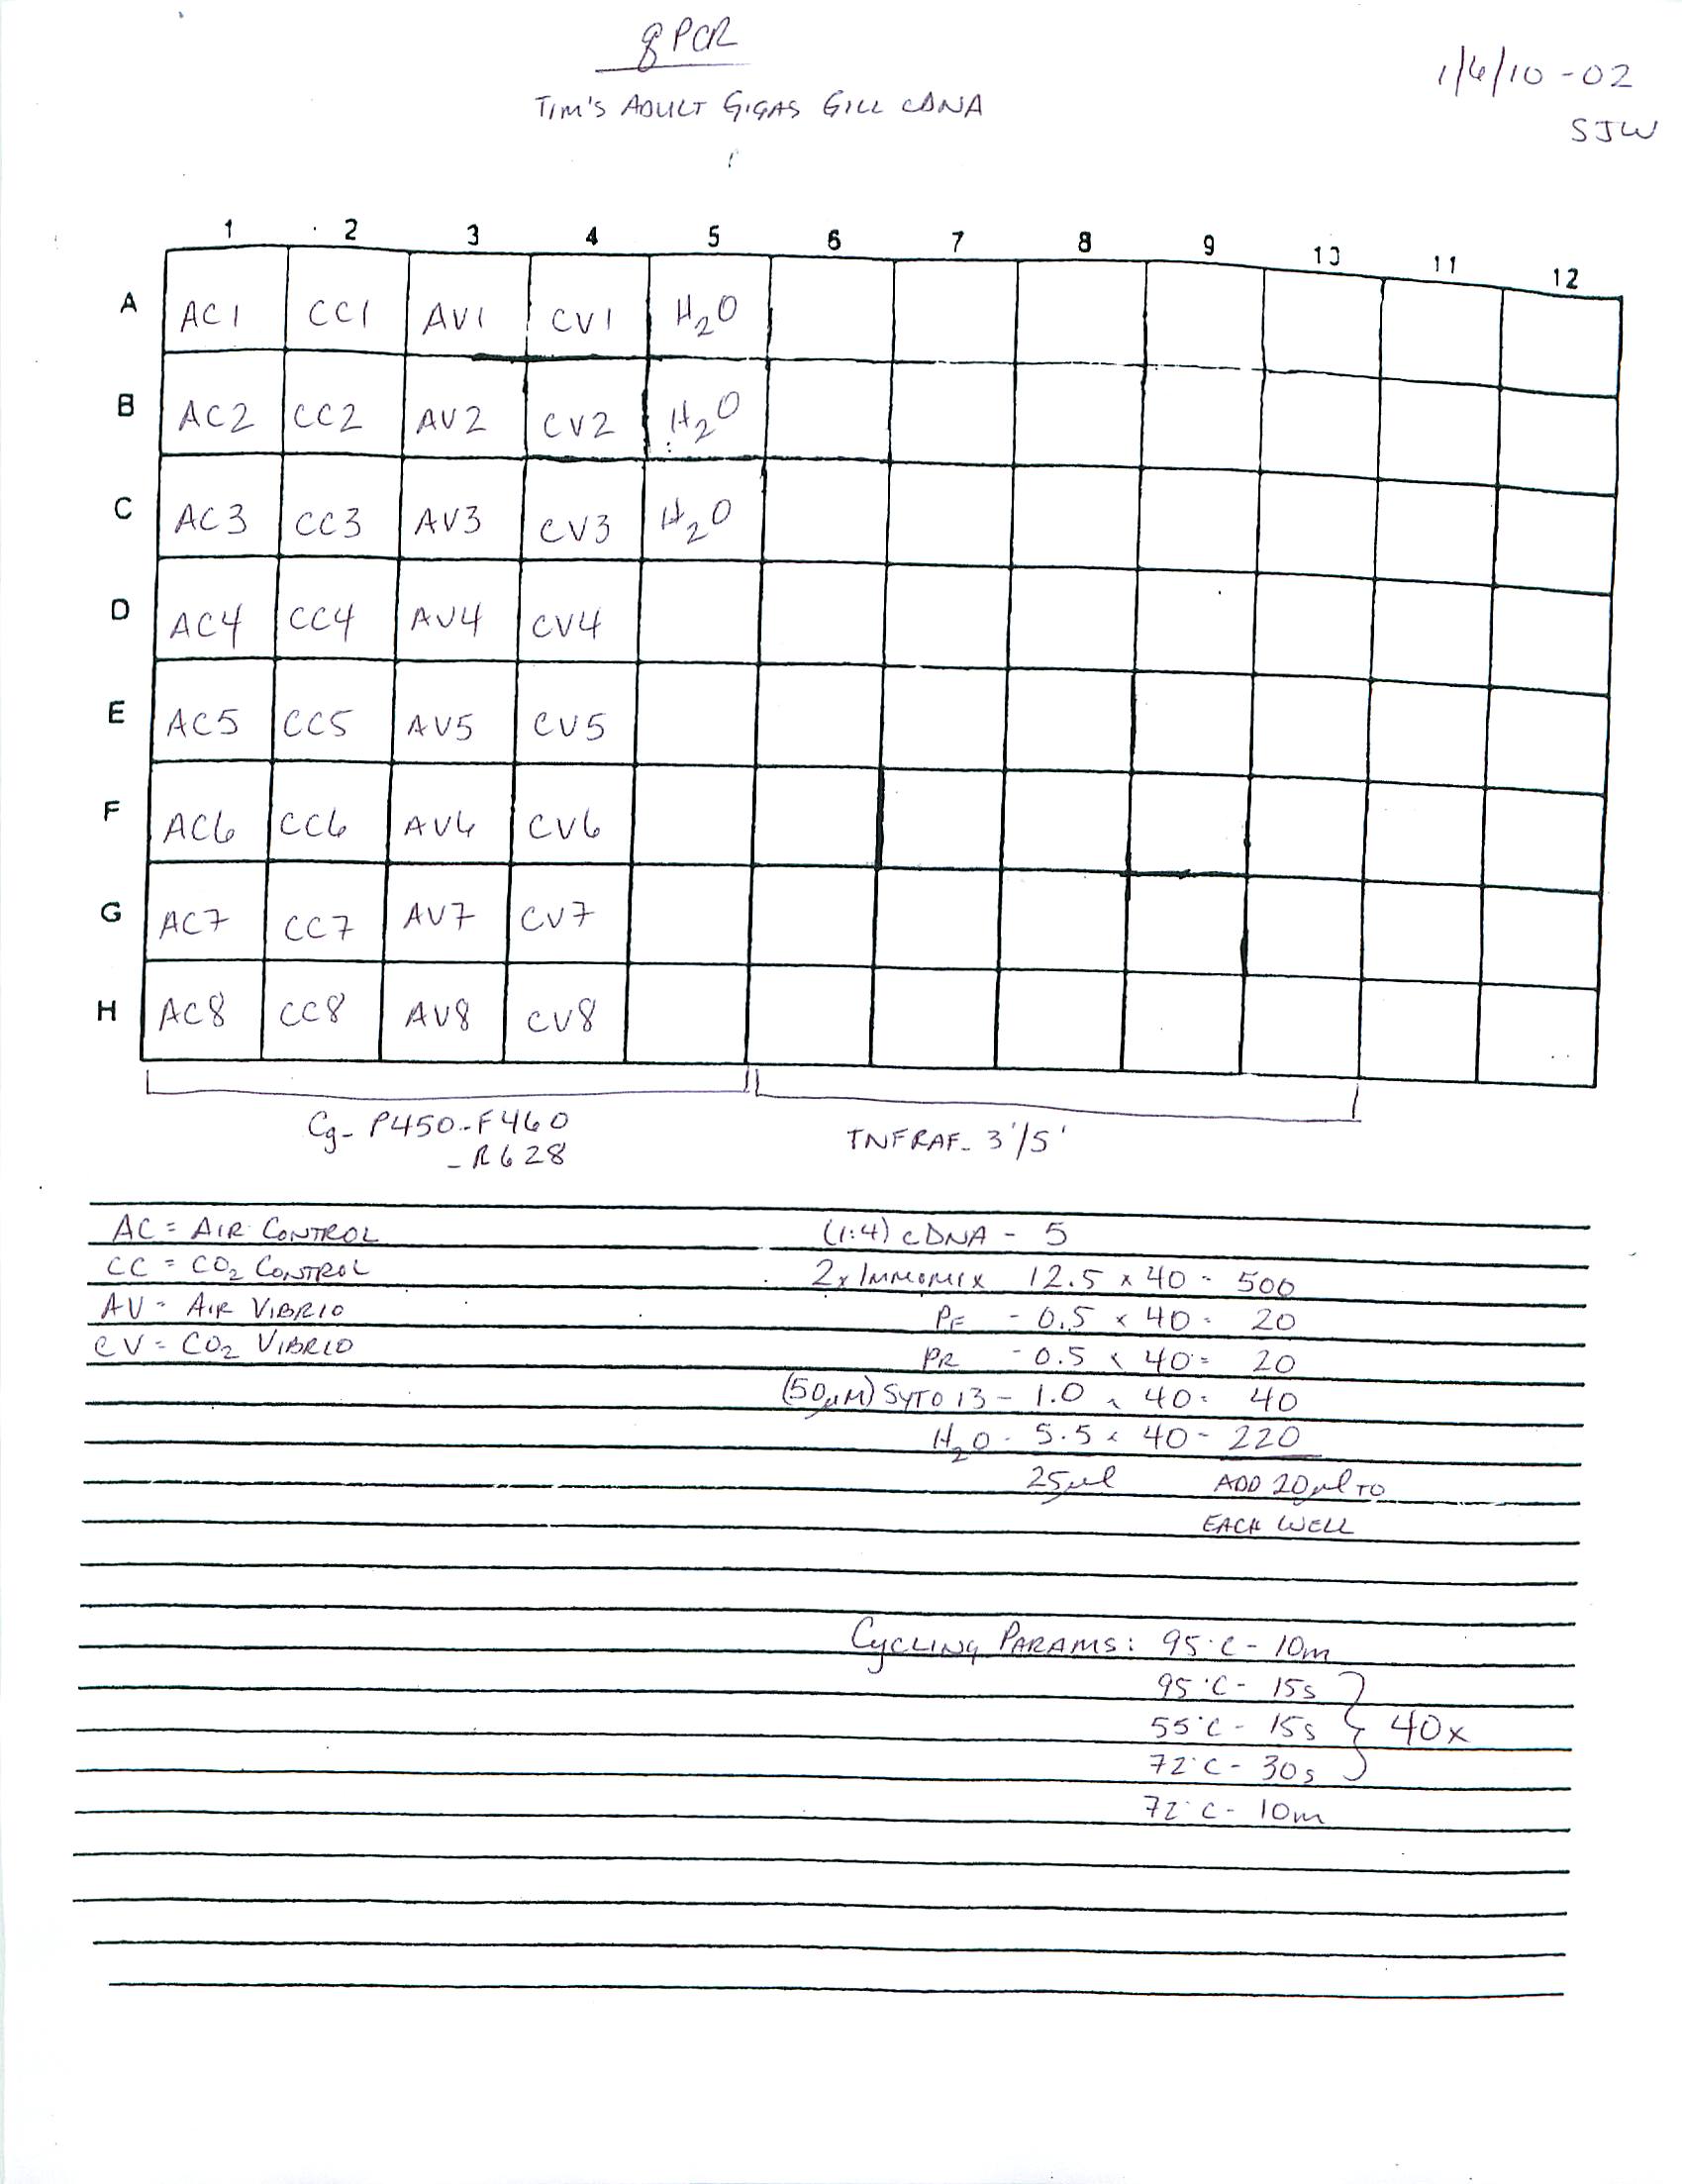 qPCR
1/6/10-02
TIM'S ADULT GIGAS GILL cDNA
SJW
1 2 3 4 5 6 7 8 9 10 11 12
A AC1 CC1 AV1 CV1 H2O
B AC2 CC2 AV2 CV2 H2O
C AC3 CC3 AV3 CV3 H2O
D AC4 CC4 AV4 CV4
E AC5 CC5 AV5 CV5
F AC6 CC6 AV6 CV6
G AC7 CC7 AV7 CV7
H AC8 CC8 AV8 CV8
Cg-P450-F460
-R628
TNFRAF-3'/5'
AC = AIR CONTROL
CC = CO2 CONTROL
AV = AIR VIBRIO
CV = CO2 VIBRIO
(1:4) cDNA - 5
2x IMMOMIX 12.5 x 40 = 500
PF - 0.5 x 40 = 20
PR - 0.5 x 40 = 20
(50µM) SYTO 13 - 1.0 x 40 = 40
H2O - 5.5 x 40 = 220
25µl ADD 20µl TO
EACH WELL
CYCLING PARAMS: 95°C - 10m
95°C - 15s
55°C - 15s } 40x
72°C - 30s
72°C - 10m